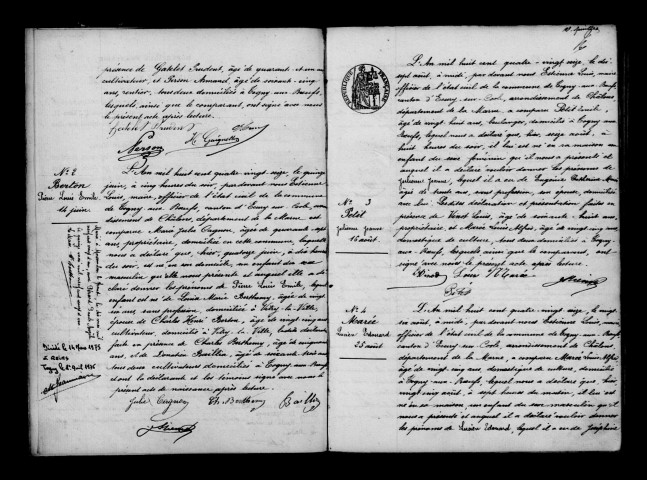 présence de Gatelet Prudent, âgé de quarante et un ans
cultivateur, et Person Armand, âgé de soixante-cinq
ans, rentier, tous deux domiciliés à Togny aux Boeufs,
lesquels, ainsi que le comparant, ont signé avec nous
le présent acte après lecture.
Person
N° 2
Berton
Pierre Louis Emile
14 juin
L'An mil huit cent quatre-vingt seize, le quinze
juin, à cinq heures du soir, par devant nous Estienne
Louis, maire, officier de l'état civil de la commune
de Togny aux Boeufs, canton d'Ecury sur Coole, arron-
dissement de Châlons, département de la Marne est
comparue Marie Julie Cugnon, âgée de quarante-sept
ans, propriétaire, domiciliée en cette commune, laquelle
nous a déclaré que, hier, quatorze juin, à dix heures
du soir, est né en son domicile, un enfant du sexe
masculin, qu'elle nous présente et auquel elle a dé-
claré donner les prénoms de Pierre Louis Emile, lequel
enfant est né de Louise Marie Berthemy, âgée de vingt
ans, sans profession, domiciliée à Vitry-la-Ville,
épouse de Charles Henri Berton, âgé de vingt cinq ans
cultivateur, domicilié à Vitry-la-Ville, ladite déclaration
faite en présence de Charles Berthemy, âgé de cinquante
ans, et de Donatien Baillin, âgé de soixante trois ans
tous deux cultivateurs domiciliés à Togny-aux-Boeufs
et ont la déclarante et les témoins signé avec nous le
présent acte de naissance, après lecture.
Décédé le 14 Mars 1975
à Reims
Togny le 2 Avril 1975
Julie Cugnon Ch. Berthemy Baillin
L'An mil huit cent quatre-vingt seize, le dix
sept août, à midi, par devant nous Estienne Louis, maire
officier de l'état civil de la commune de Togny aux Boeufs
canton d'Ecury-sur-Coole, arrondissement de Châlons,
département de la Marne, a comparu Petit Emile,
âgé de vingt huit ans, boulanger, domicilié à Togny-aux
Boeufs, lequel nous a déclaré que, hier, seize août, à
huit heures du soir, il lui est né en sa maison un
enfant du sexe féminin qu'il nous a présenté et
auquel il a déclaré vouloir donner les prénoms de
Julienne Jeanne, lequel il a eu de
âgée de trente ans, sans profession, son épouse, domiciliée
avec lui. Lesdites déclaration et présentation faites en
présence de Louis, âgé de soixante-huit ans,
propriétaire, et Marée Louis Alfred, âgé de vingt cinq ans
domestique de culture, tous deux domiciliés à Togny-
aux-Boeufs, lesquels ainsi que le comparant, ont
signé avec nous le présent acte après lecture.
N° 3
Petit
Julienne Jeanne
16 août
Louis Marée
Petit
REPUBLIQUE FRANÇAISE
N° 4
Marée
Lucien Edmond
25 août
L'An mil huit cent quatre-vingt seize, le vingt
six août, à midi, par devant nous Estienne Louis, maire
officier de l'état civil de la commune de Togny-aux-Boeufs,
canton d'Ecury-sur-Coole, arrondissement de Châlons,
département de la Marne, a comparu Marée Louis Alfred
âgé de vingt cinq ans, domestique de culture, domicilié
à Togny-aux-Boeufs, lequel nous a déclaré que, hier,
vingt cinq août, à sept heures du matin, il lui est
né en sa maison, un enfant du sexe masculin qu'il
nous a présenté et auquel il a déclaré vouloir donner
les prénoms de Lucien Edmond, lequel il a eu de Joséphine